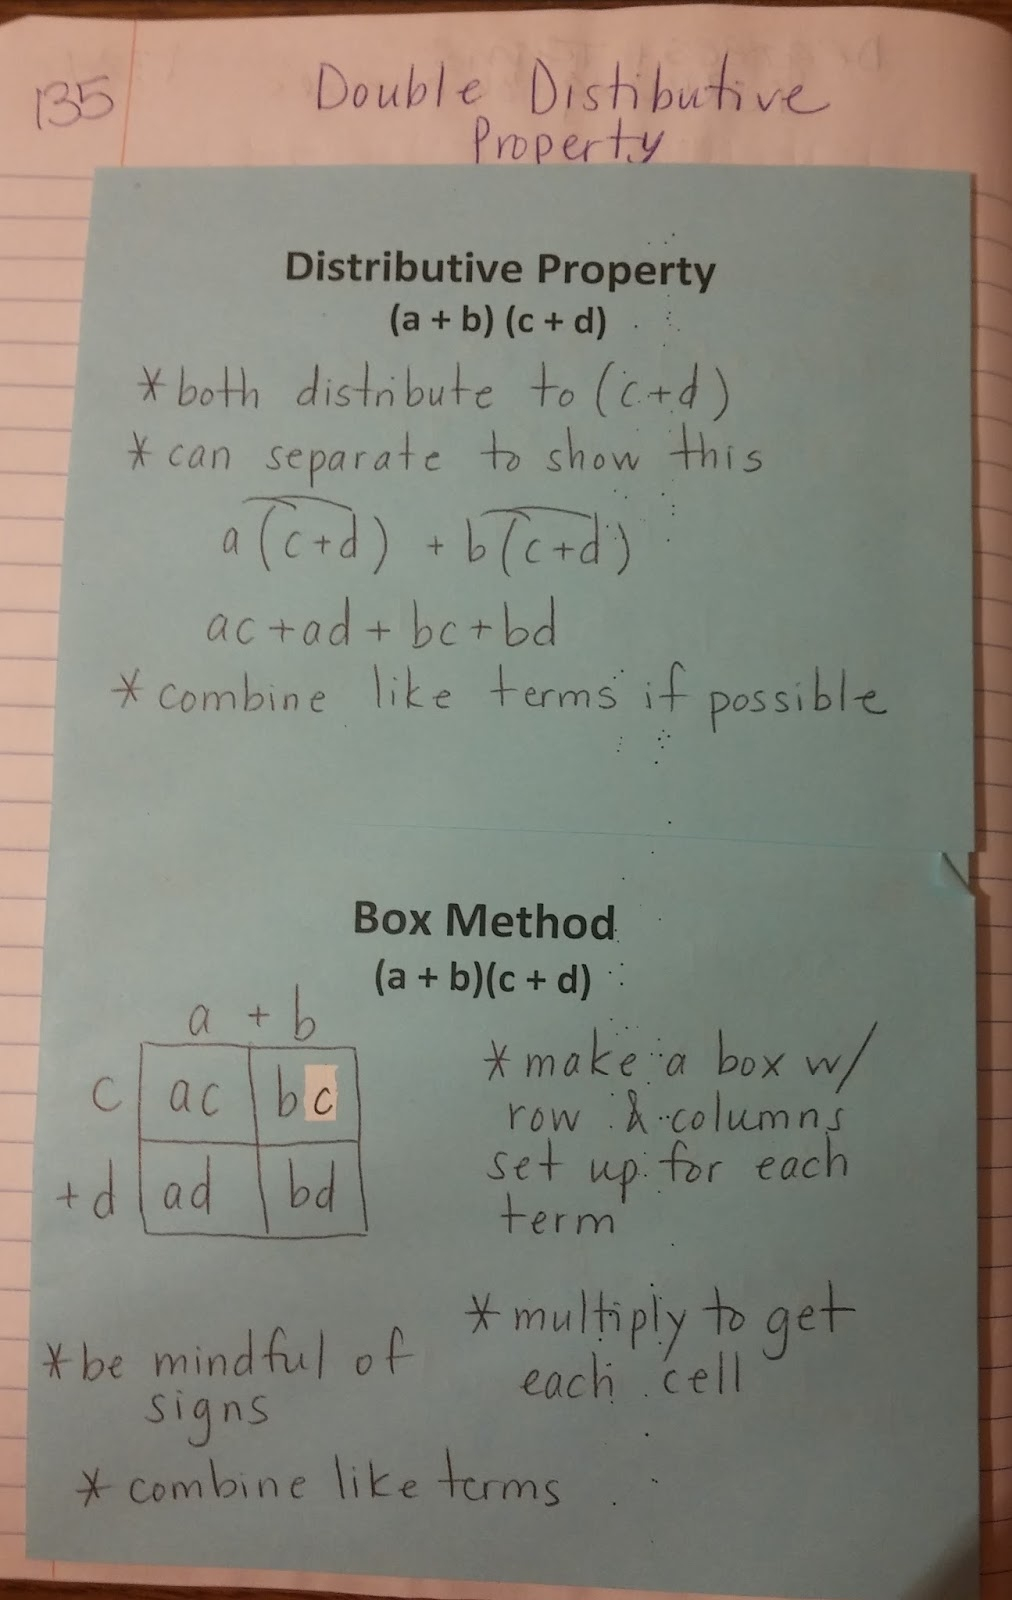 135
Double Distibutive
Property
Distributive Property
(a + b) (c + d)
* both distribute to (c+d)
* can separate to show this
a(c+d) + b(c+d)
ac+ad+bc+bd
* combine like terms if possible
Box Method
(a + b)(c + d)
a + b
c ac bc
+d ad bd
* make a box w/
row & columns
set up for each
term
* multiply to get
each cell
* be mindful of
signs
* combine like terms